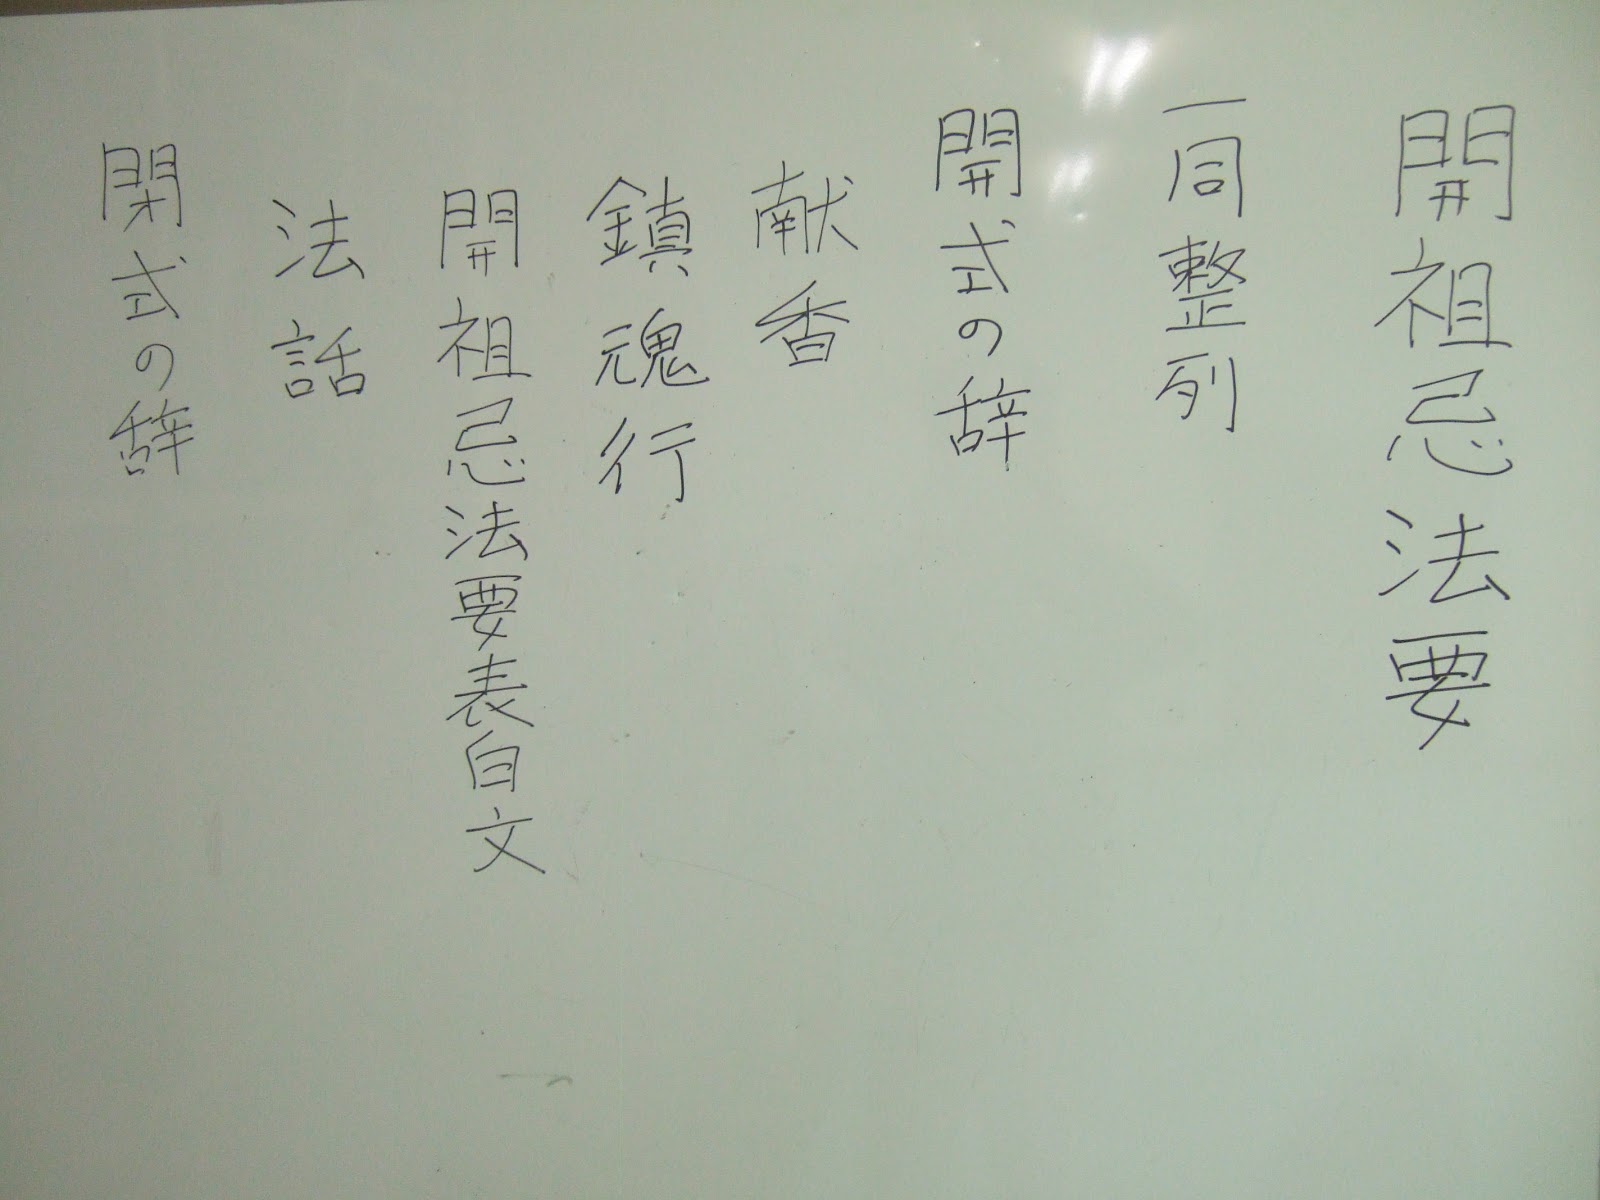 開祖忌法要
一同整列
開式の辞
献香
鎮魂行
開祖忌法要表白文
法話
閉式の辞